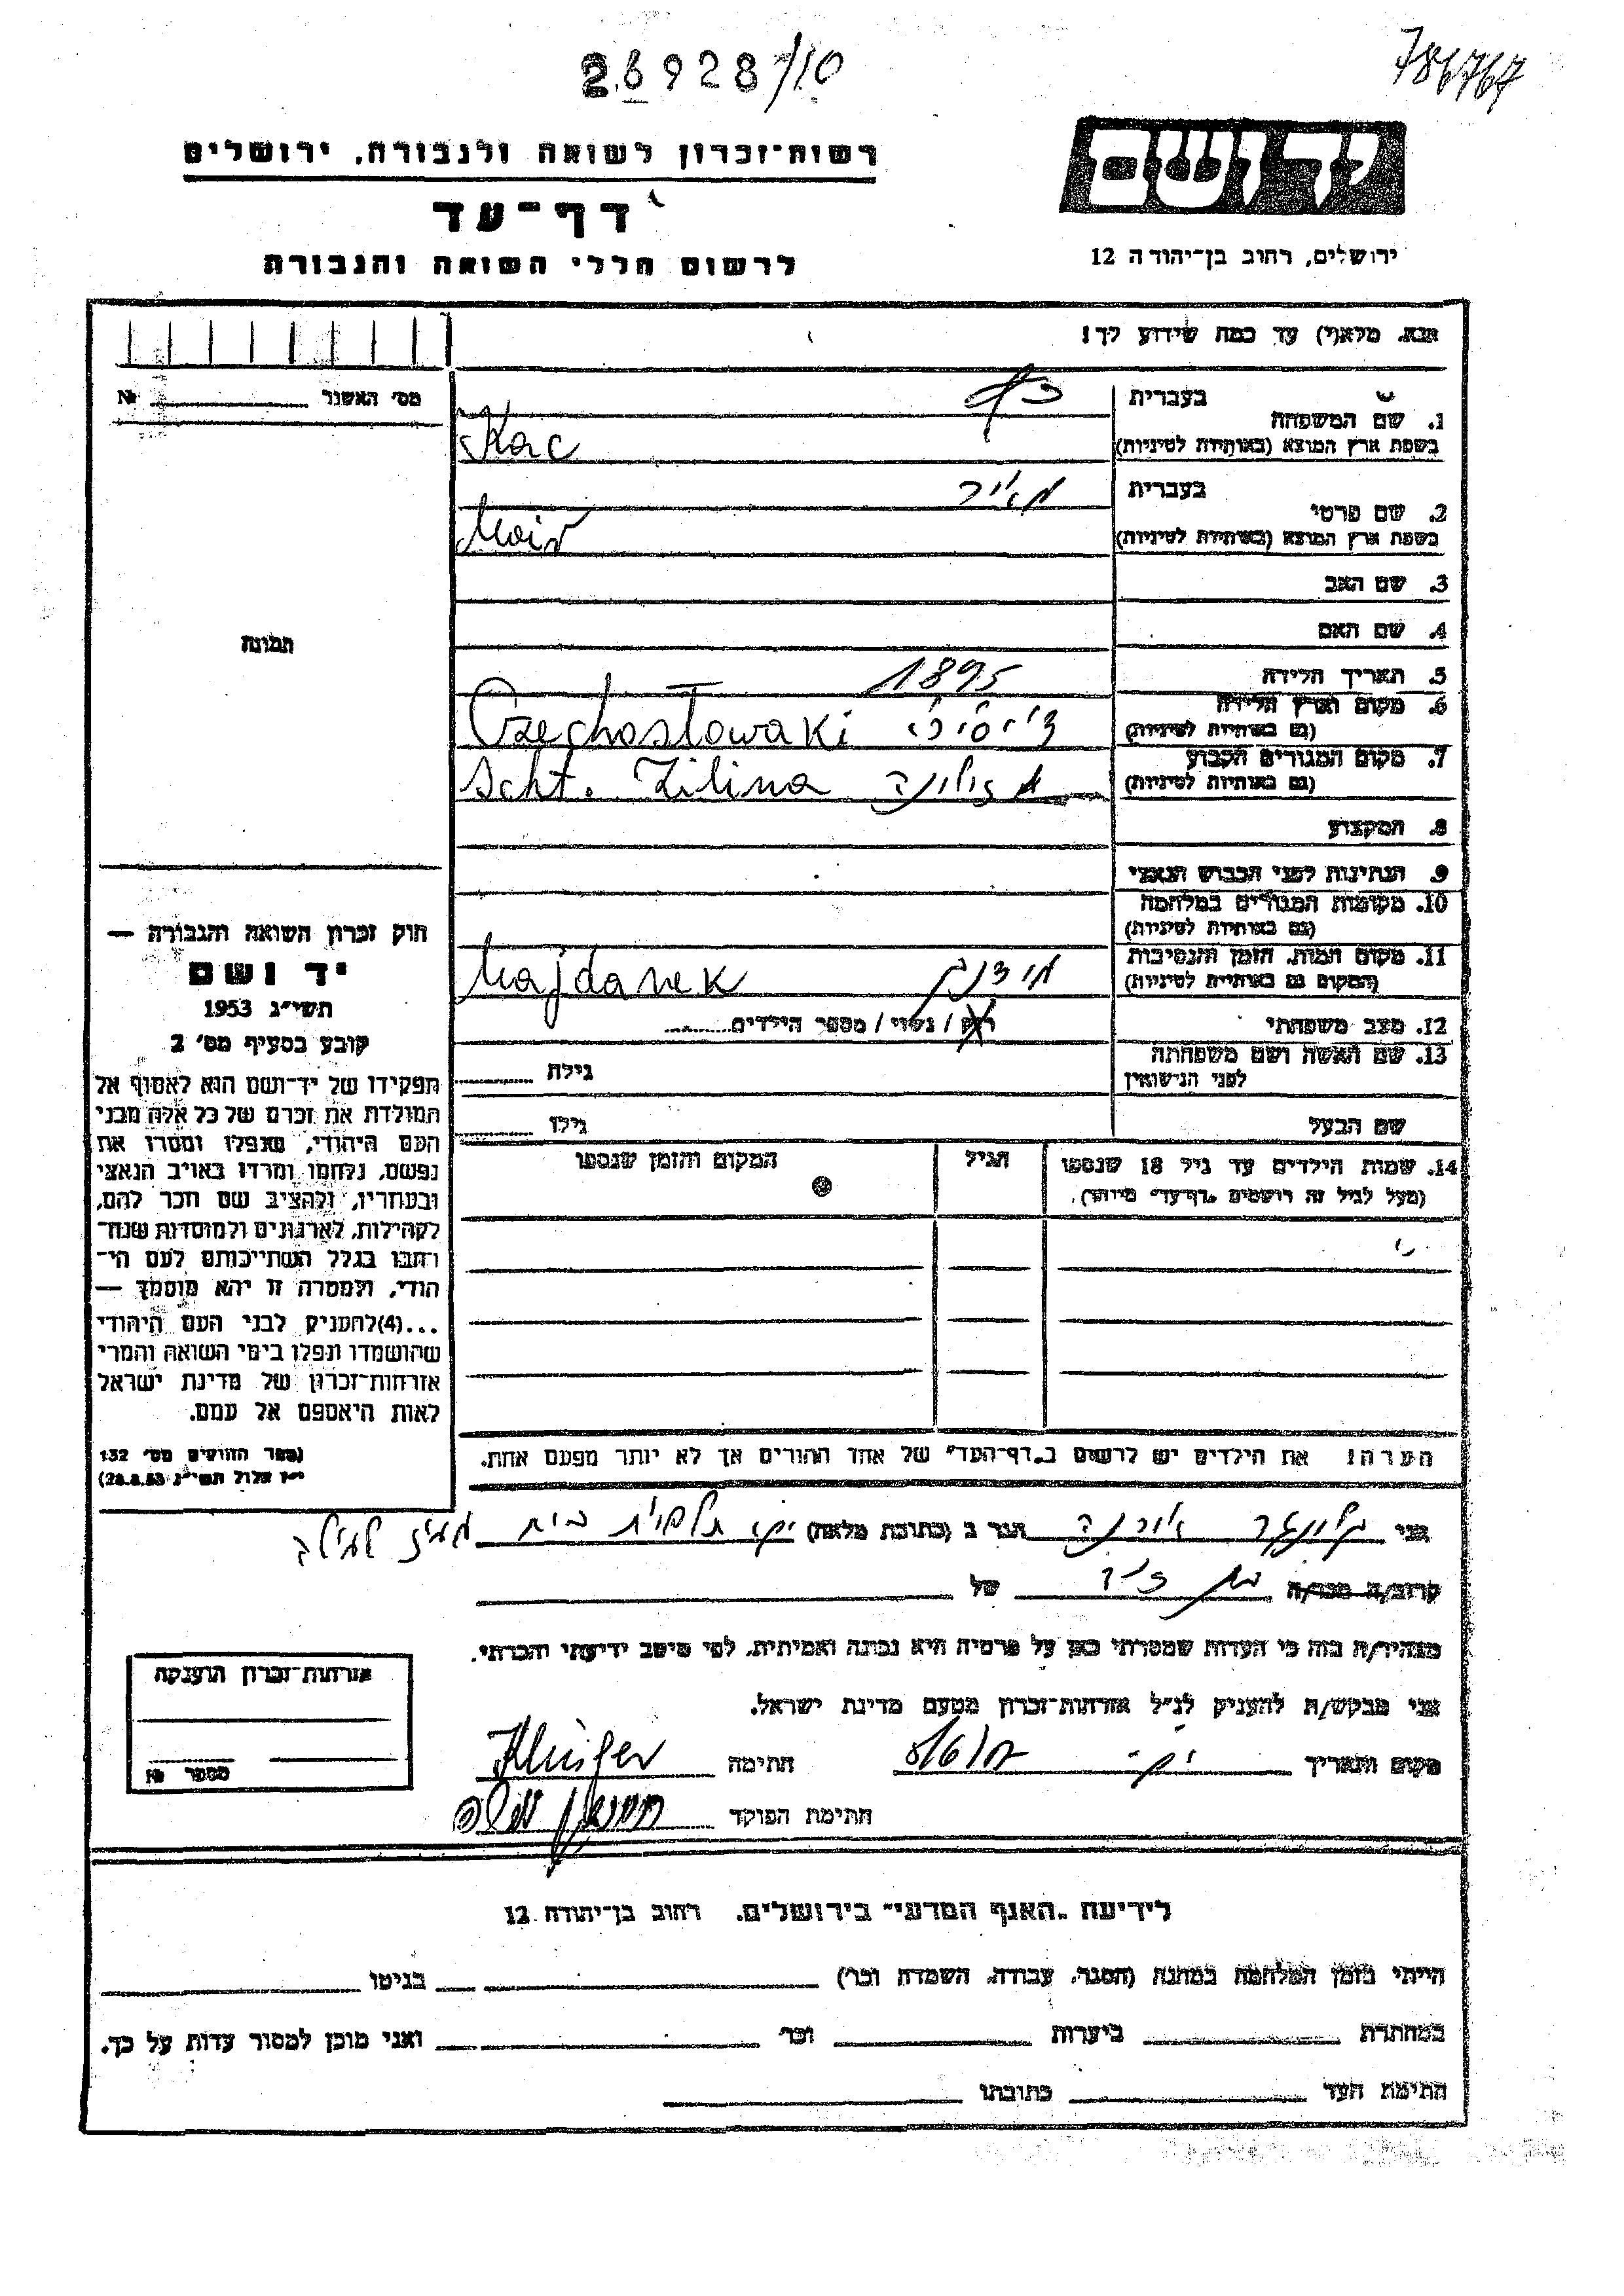 26928/10
786767
יד ושם
ירושלים, רחוב בן־יהודה 12
רשות־זכרון לשואה ולגבורה, ירושלים
דף־עד
לרשום חללי השואה והגבורה
אנא, מלא(י) עד כמה שידוע לך!
מס' האשנר № 
1. שם המשפחה
בעברית כץ
בשפת ארץ המוצא (באותיות לטיניות) Kac
2. שם פרטי
בעברית מאיר
בשפת ארץ המוצא (באותיות לטיניות) Meir
3. שם האב
4. שם האם
5. תאריך הלידה 1895
6. מקום וארץ הלידה
(גם באותיות לטיניות) Czechosłowaki
7. מקום המגורים הקבוע
(גם באותיות לטיניות) Scht. Zilina זילינה
8. המקצוע
9. הנתינות לפני הכבוש הנאצי
10. מקומות המגורים במלחמה
(גם באותיות לטיניות)
11. מקום המות, הזמן והנסיבות
(המקום גם באותיות לטיניות) Majdanek מידנק
12. מצב משפחתי רווק / נשוי / מספר הילדים
13. שם האשה ושם משפחתה
לפני הנישואין גילה
שם הבעל גילו
14. שמות הילדים עד גיל 18 שנספו
(מעל לגיל זה רושמים „דף־עד" מיוחד).
הגיל
המקום והזמן שנספו
הערה! את הילדים יש לרשום ב„דף־העד" של אחד ההורים אך לא יותר מפעם אחת.
תמונה
חוק זכרון השואה והגבורה —
יד ושם
תשי"ג 1953
קובע בסעיף מס' 2
תפקידו של יד־ושם הוא לאסוף אל
המולדת את זכרם של כל אלה מבני
העם היהודי, שנפלו ומסרו את
נפשם, נלחמו ומרדו באויב הנאצי
ובעוזריו, ולהציב שם וזכר להם,
לקהילות, לארגונים ולמוסדות שנח־
רבו בגלל השתייכותם לעם הי־
הודי, ולמטרה זו יהא מוסמך —
...(4) להעניק לבני העם היהודי
שהושמדו ונפלו בימי השואה והמרי
אזרחות־זכרון של מדינת ישראל
לאות היאספם אל עמם.
(ספר החוקים מס' 132
י"ז אלול תשי"ג 28.8.53)
אני הגר ב (כתובת מלאה)
קרוב/ה מכר/ה של
מצהיר/ה בזה כי העדות שמסרתי כאן על פרטיה היא נכונה ואמיתית, לפי מיטב ידיעתי והכרתי.
אני מבקש/ת להעניק לנ"ל אזרחות־זכרון מטעם מדינת ישראל.
מקום ותאריך חתימה
חתימת הפוקד
אזרחות־זכרון הוענקה
מספר №
לידיעת „האגף המדעי" בירושלים, רחוב בן־יהודה 12
הייתי בזמן המלחמה במחנה (הסגר, עבודה, השמדה וכו') בגיטו
במחתרת ביערות וכו' ואני מוכן למסור עדות על כך.
חתימת העד כתובתו